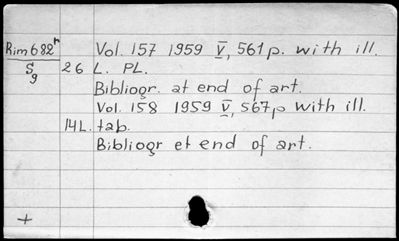 Rim682r Vol. 157 1959 V, 561 p. with ill.
S 26 L. PL.
g
Bibliogr. at end of art.
Vol. 158 1959 V, 567 p with ill.
14 L. tab.
Bibliogr et end of art.
+